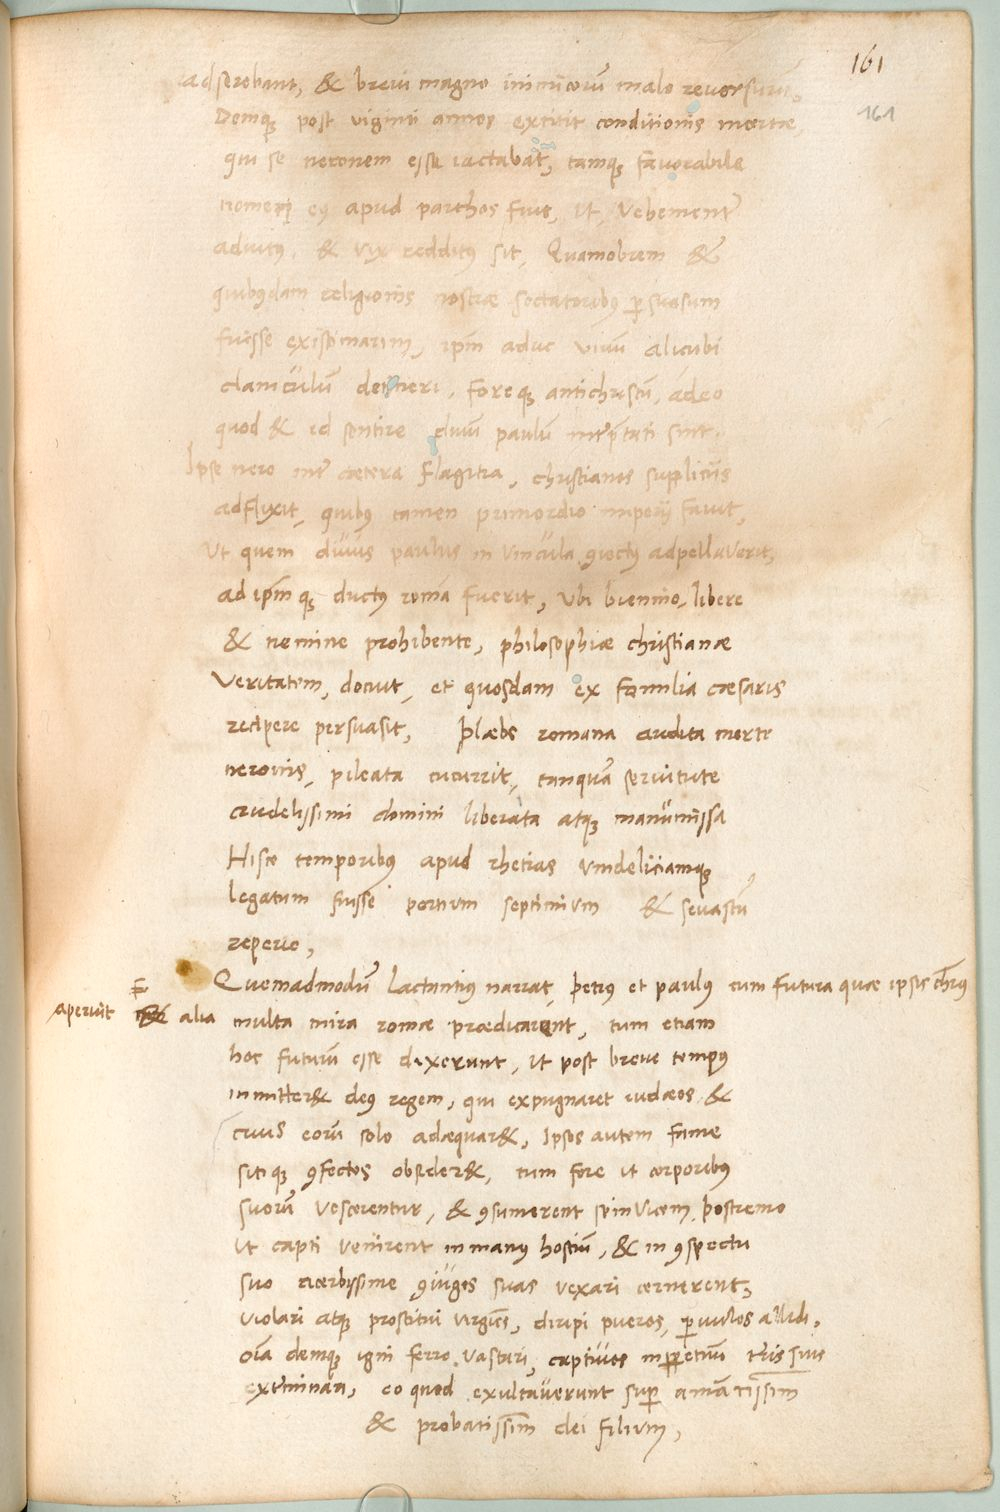 161
161
adserebant, & brevi magno inimicorū malo reversurū.
Demq; post viginti annos extitit conditionis incertæ,
qui se neronem esse iactabat, tamq; favorabile
nomen ei9 apud parthos fuit, ut, vehementr̄
adiut9, & vix reddit9 sit, Quamobrem &
quibusdam religionis nostræ sectatorib9 p̱suasum
fuisse existimarim, ip̄m aduc vivū alicubi
clanculum detineri, foreq; antichristū, adeo
quod & id sentire divū paulū int̄p̄tati sint.
Ipse nero int̄ cætera flagitia, christianos suppliciis
adflixit, quib9 tamen primordio imperij favit,
Ut quem divus paulus in vincula 9iect9 adpellaverit,
ad ip̄m q; duct9 romā fuerit, ubi biennio, libere
& nemine prohibente, philosophiæ christianæ
veritatem, docuit, et quosdam ex familia cæsaris
recipere persuasit, Plæbs romana audita morte
neronis, pileata cucurrit, tanquā servitute
crudelissimi domini liberata atq; manumissa
Hisce temporib9 apud rhetias vindeliciamq;
legatum fuisse portium septimium & sevastū
reperio,
Quemadmodū Lactanti9 narrat, petr9 et paul9 cum futura quæ ipsis chr̄us
aperuit & alia multa mira romæ prædicarent, tum etiam
hoc futurū esse dixerunt, ut post breve temp9
inmitter& de9 regem, qui expugnaret iudæos &
civis eorū solo adæquar&, Ipsos autem fame
sitiq; 9fectos obsider&, tum fore ut corporib9
suorū vescerentur, & 9sumerent se invicem, postremo
ut capti venirent in man9 hostiū, & in 9spectu
suo acerbissime 9iuges suas vexari cernerent,
violari atq; prostitui virgīes, diripi pueros, p̱vulos allidi,
oīa demq; igni ferro vastari, captivos inp̱petuū t̄ris suis
ext̄minari, eo quod exultaverunt sup̱ amātissim̄
& probatissim̄ dei filium,